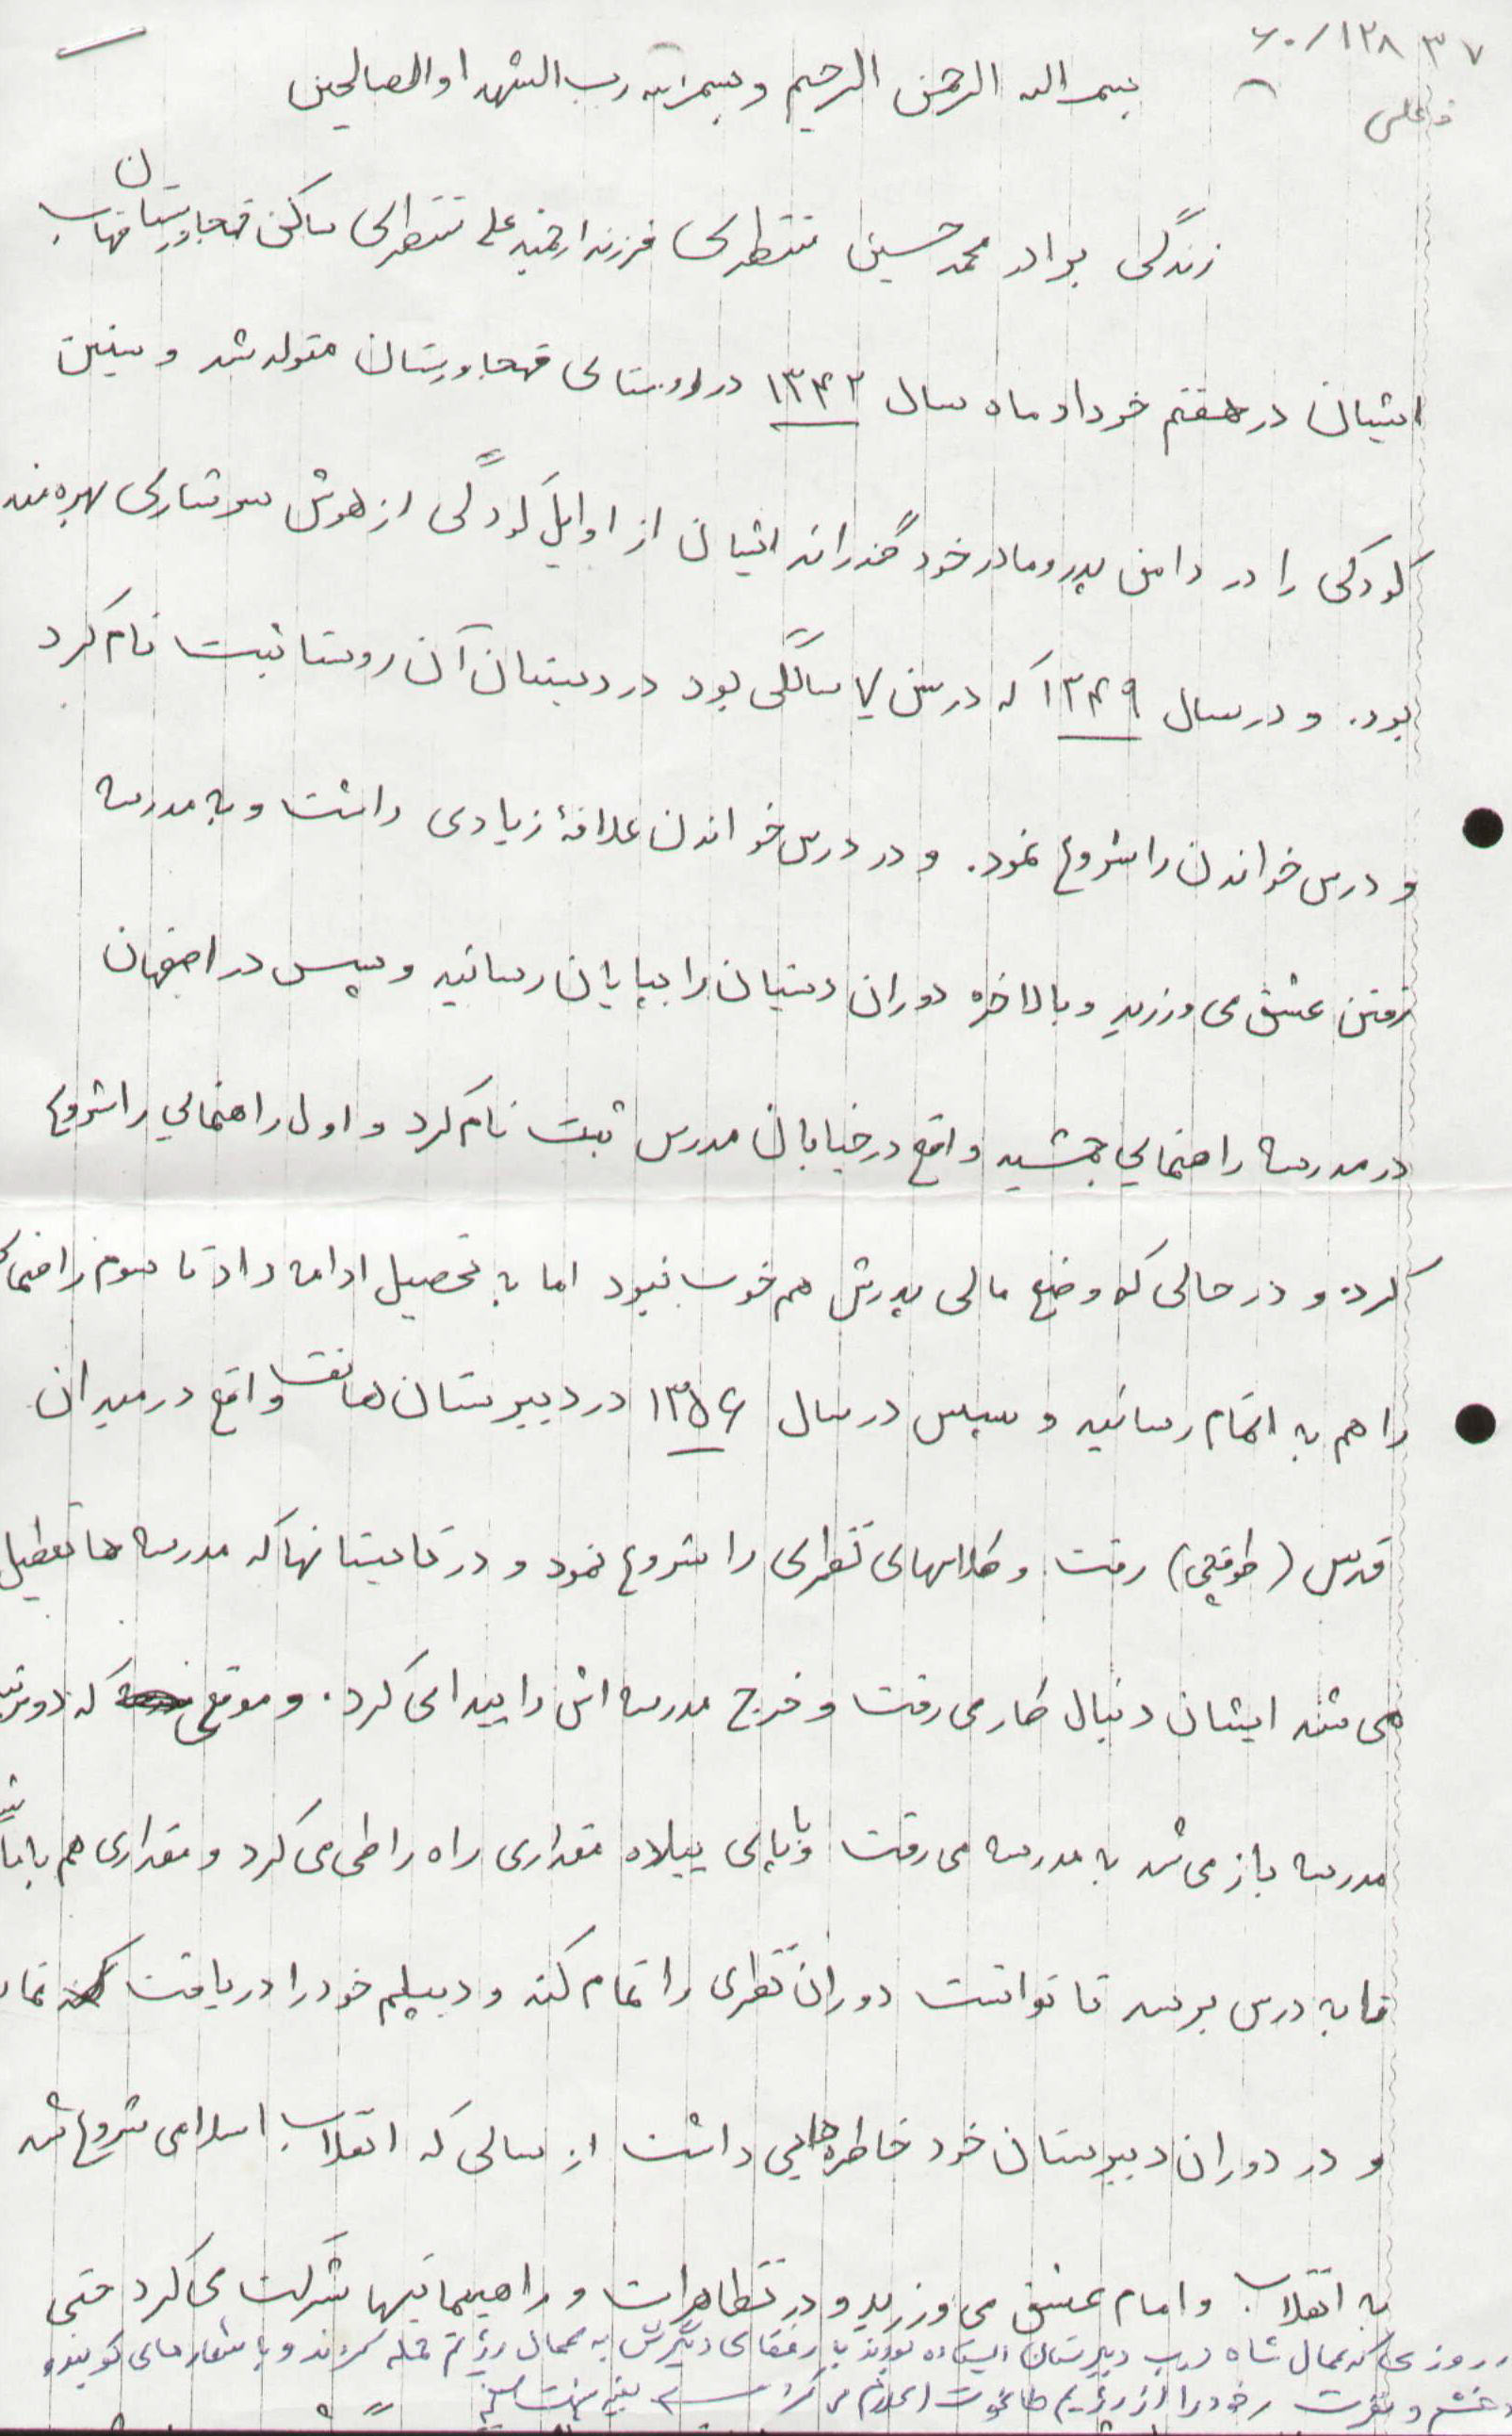 ۶۰/۱۲۸ ۳۷
بسم الله الرحمن الرحیم و بسم الله رب الشهداء و الصالحین
زندگی برادر محمد حسین منتظری فرزند ارجمند علی منتظری ساکن قهجاورستان قهاب
ایشان در هفتم خرداد ماه سال ۱۳۴۲ در روستای قهجاورستان متولد شد و سنین
کودکی را در دامن پدر و مادر خود گذراند ایشان از اوایل کودگی از هوش سرشاری بهره مند
بود. و در سال ۱۳۴۹ که در سن ۷ سالگی بود در دبستان آن روستا ثبت نام کرد
و درس خواندن را شروع نمود. و در درس خواندن علاقهٔ زیادی داشت و به مدرسه
رفتن عشق می ورزید و بالاخره دوران دبستان را بپایان رسانید و سپس در اصفهان
در مدرسه راهنمایی جمشید واقع در خیابان مدرس ثبت نام کرد و اول راهنمایی را شروع
کرد. و در حالی که وضع مالی پدرش هم خوب نبود اما به تحصیل ادامه داد تا سوم راهنمای
را هم به اتمام رسانید و سپس در سال ۱۳۵۶ در دبیرستان هاتف واقع در میدان
قدس (طوقچی) رفت و کلاسهای نظری را شروع نمود و در تابستانها که مدرسه ها تعطیل
می شد ایشان دنبال کار می رفت و خرج مدرسه اش را پیدا می کرد. و موقع که دو مرتبه
مدرسه باز می شد به مدرسه می رفت و با پای پیاده مقداری راه را طی می کرد و مقداری هم با ماشین
تا به درس برسد تا توانست دوران نظری را تمام کند و دیپلم خود را دریافت نماید
و در دوران دبیرستان خود خاطره هایی داشت از سالی که انقلاب اسلامی شروع شد
به انقلاب و امام عشق می ورزید و در تظاهرات و راهپیمائیها شرکت می کرد حتی
روزی که عمال شاه درب دبیرستان ایستاده بودند با رفقای دیگرش به عمال رژیم حمله کردند و با شعارهای کوبنده
خشم و نفرت خود را از رژیم طاغوت اعلام می کرد بقیه پشت صفحه